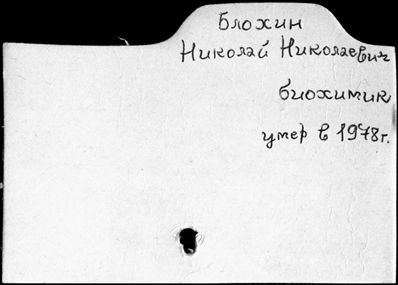 Блохин
Николай Николаевич
биохимик
умер в 1978г.